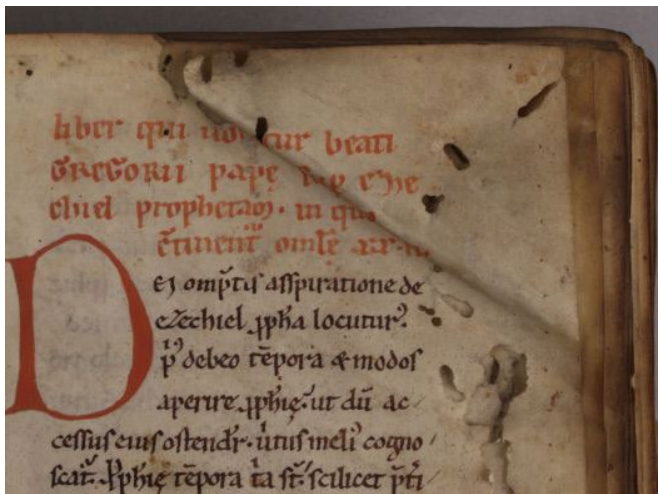 liber qui uocatur beati
GREGORII papę eze
chiel prophetam · in quo
c̄tinent᷑ omł̄e
DEi omp̄tis asspiratione de
ezechiel ꝓph̄a locuturꝰ.
pⁱꝰ debeo tēpora & modos
aperire ꝓph̄ię. ut dū ac
cessus eius ostendr̄. uirtus meliꝰ cogno
scat᷑. Ꝓphię tēpora tⁱa st̄. scilicet p̄tⁱ